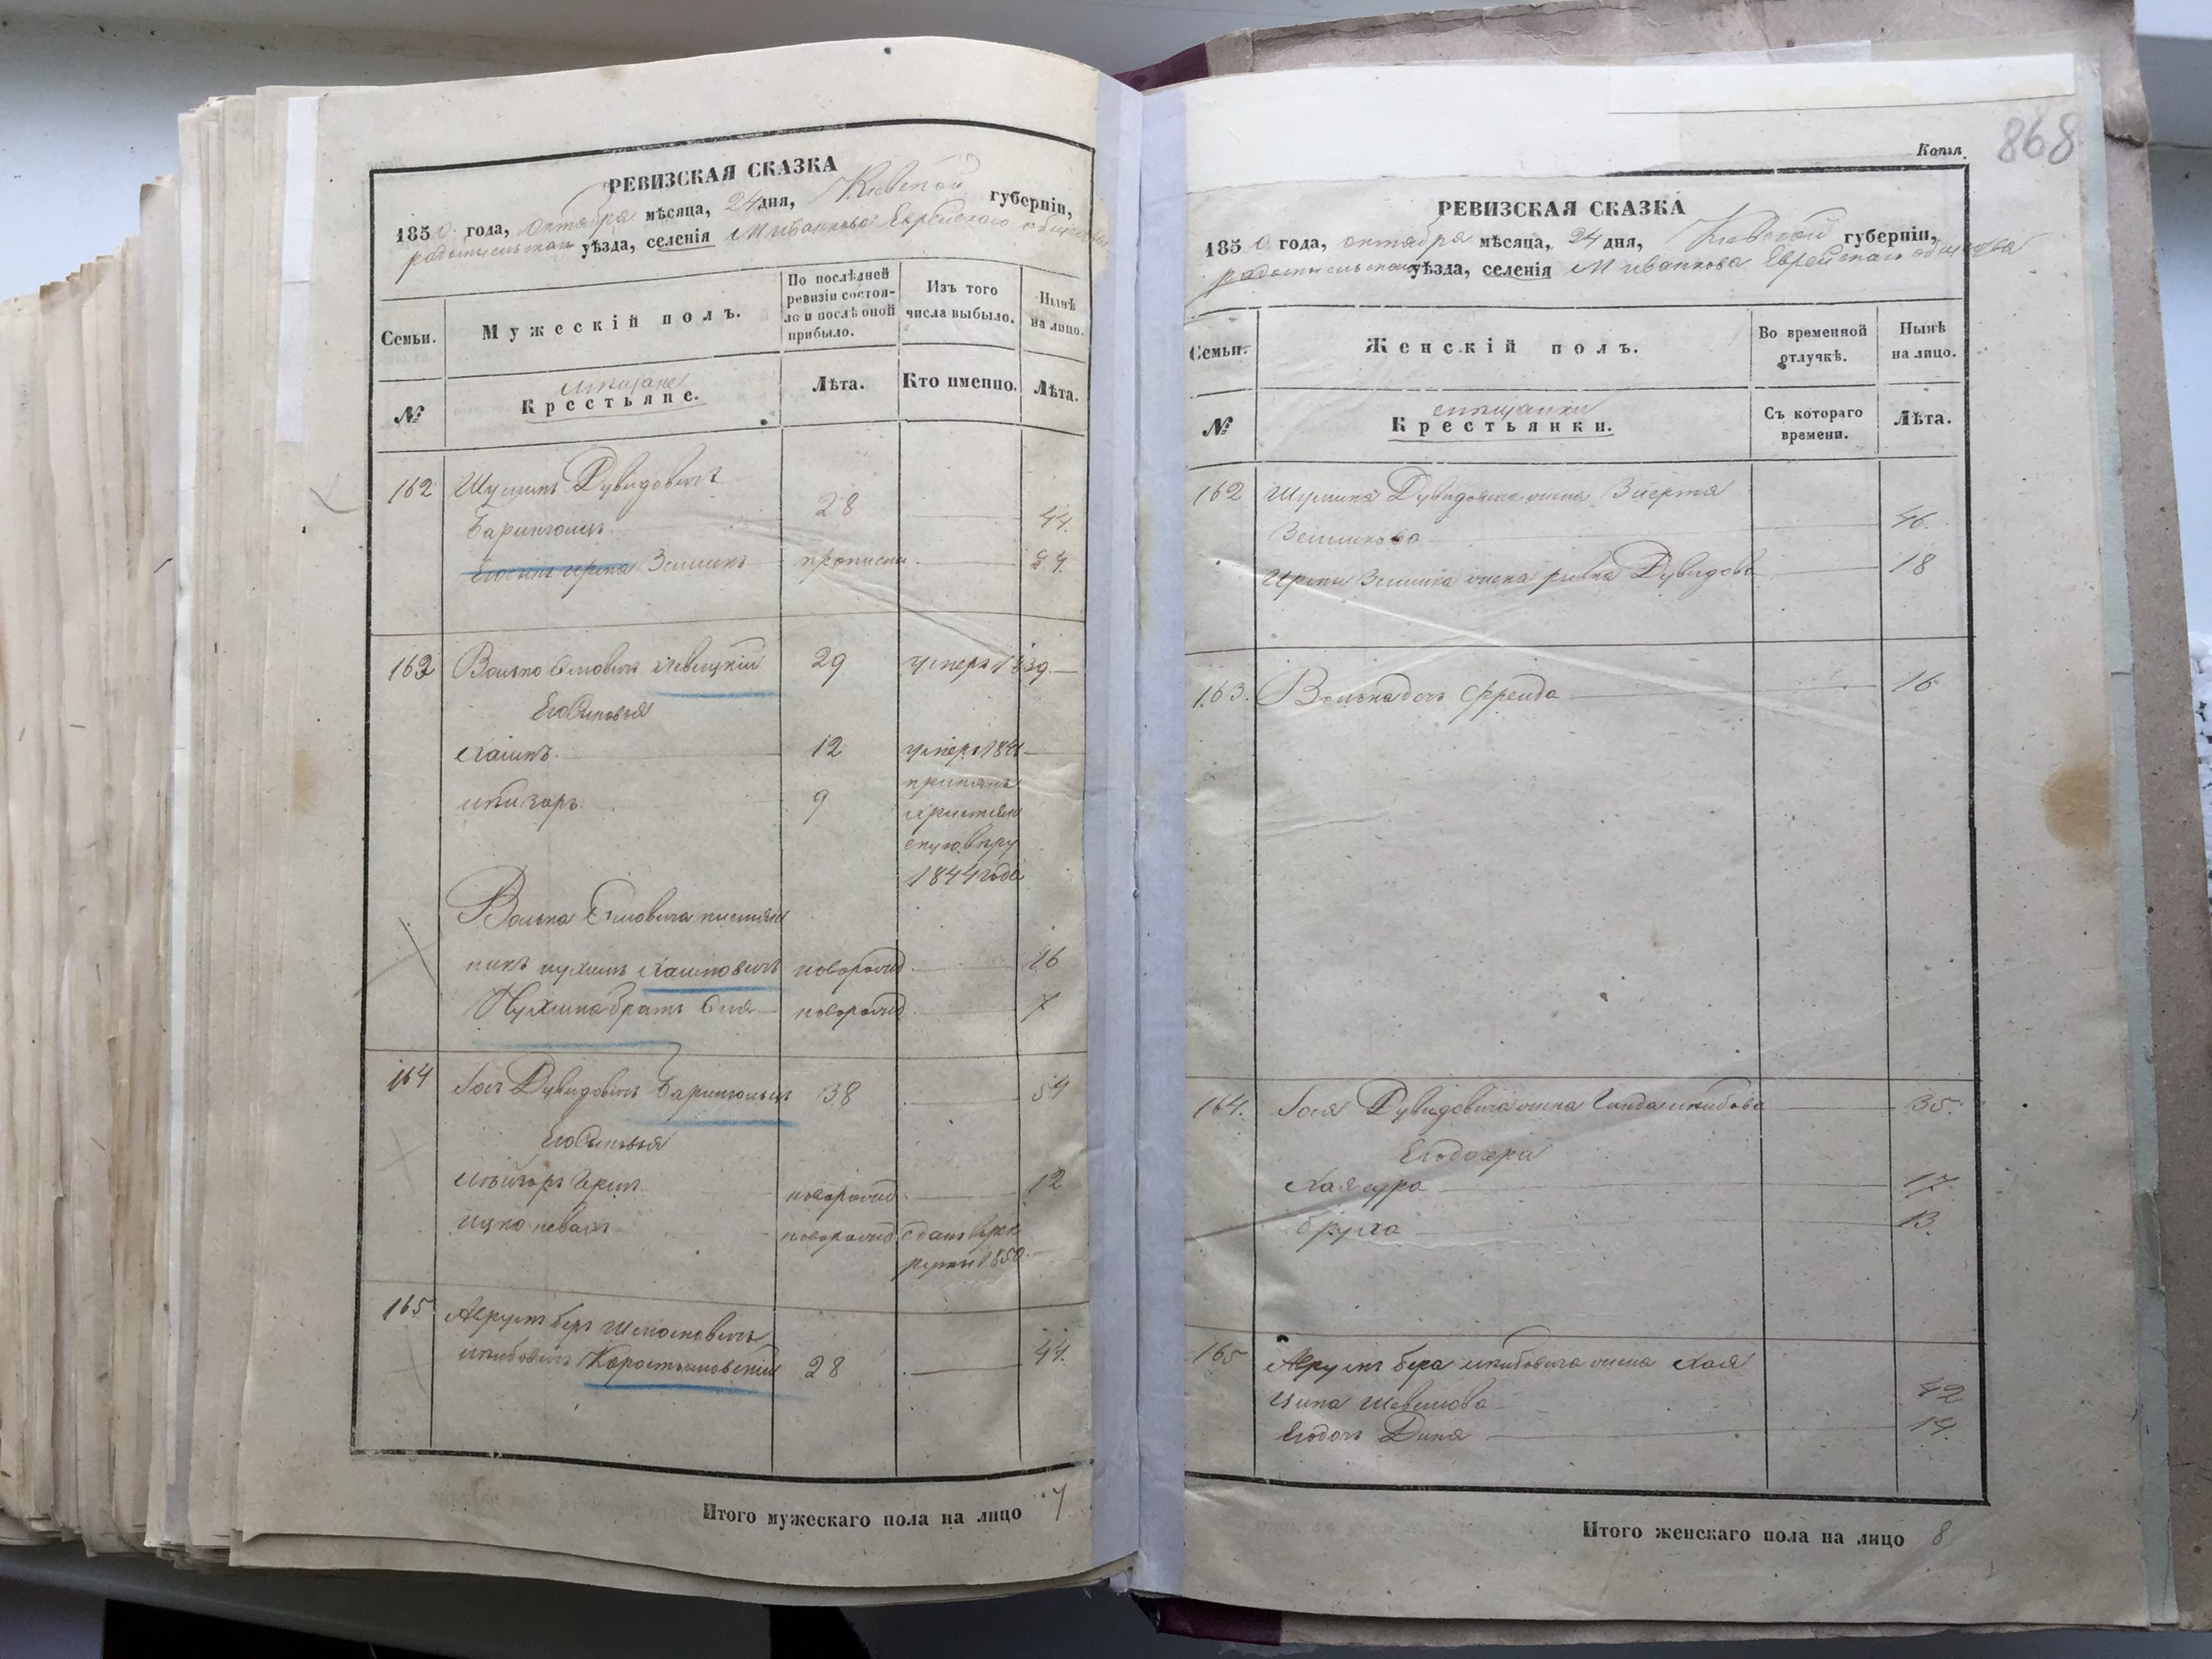 РЕВИЗСКАЯ СКАЗКА
1850 года, октября мѣсяца, 24 дня, Киевской губернiи,
радомысльскаго уѣзда, селенiя М иванкова Еврейскаго общества
Семьи.
Мужескiй полъ.
По послѣдней ревизiи состоя-
ло и послѣ оной прибыло.
Изъ того числа выбыло.
Нынѣ на лицо.
№
мѣщане
Крестьяне.
Лѣта.
Кто именно.
Лѣта.
162 Шулимъ Дувидовичъ
28 44.
Зельманъ прописан.
163 Волько Сруловичъ 29 умеръ 1839
Его Сыновья
Хаимъ 12 умеръ 184
лейзоръ 9 принялъ
христiан
скую веру
1844 года
Волька племян
никъ нухимъ Хаимовичъ новорожд. 16
Нухима братъ новорожд 7
164 Iось Дувидовичъ 38 54
Его Сыновья
лейзоръ новорожд. 12
ицко новорожд сданъ в рек
руты 1850
165 Аврумъ беръ
лейбовичъ Коростышовскiй 28 44.
Итого мужескаго пола на лицо 7
Копiя.
868
РЕВИЗСКАЯ СКАЗКА
1850 года, октября мѣсяца, 24 дня, Киевской губернiи,
радомысльскаго уѣзда, селенiя М иванкова Еврейскаго общества
Семьи.
Женскiй полъ.
Во временной отлучкѣ.
Нынѣ на лицо.
№
мѣщанки
Крестьянки.
Съ котораго времени.
Лѣта.
162 Шулима Дувидовича жена
Зельманова 46.
жена ривка Дувидова 18
163. Волька дочь Фрейда 16
164. Iося Дувидовича жена лейбова 35.
Его дочери
Хая сура 17.
бруха 13.
165 Аврумъ бера лейбовича жена Хая
Ципа 42
Его дочь Диня 14.
Итого женскаго пола на лицо 8